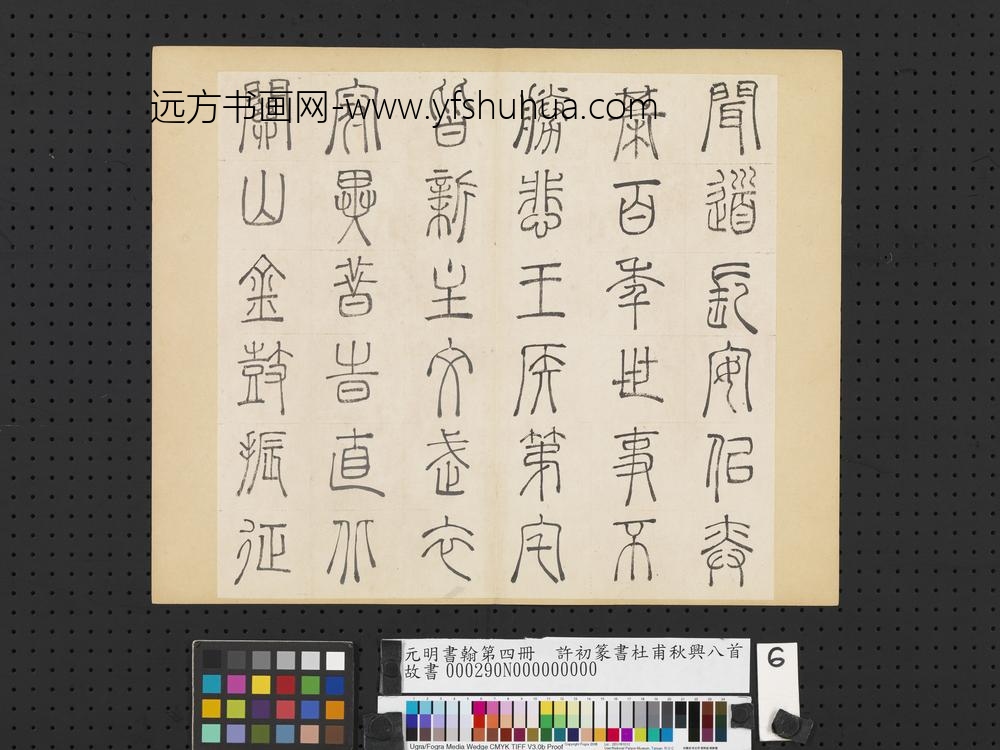 聞道長安佀弈
棊百年世事不
勝悲王矦第宅
皆新主文武衣
冠異昔旹直北
關山金鼓振征
远方书画网-www.yfshuhua.com
元明書翰第四冊　許初篆書杜甫秋興八首
故書 000290N000000000
6
Ugra/Fogra Media Wedge CMYK TIFF V3.0b Proof